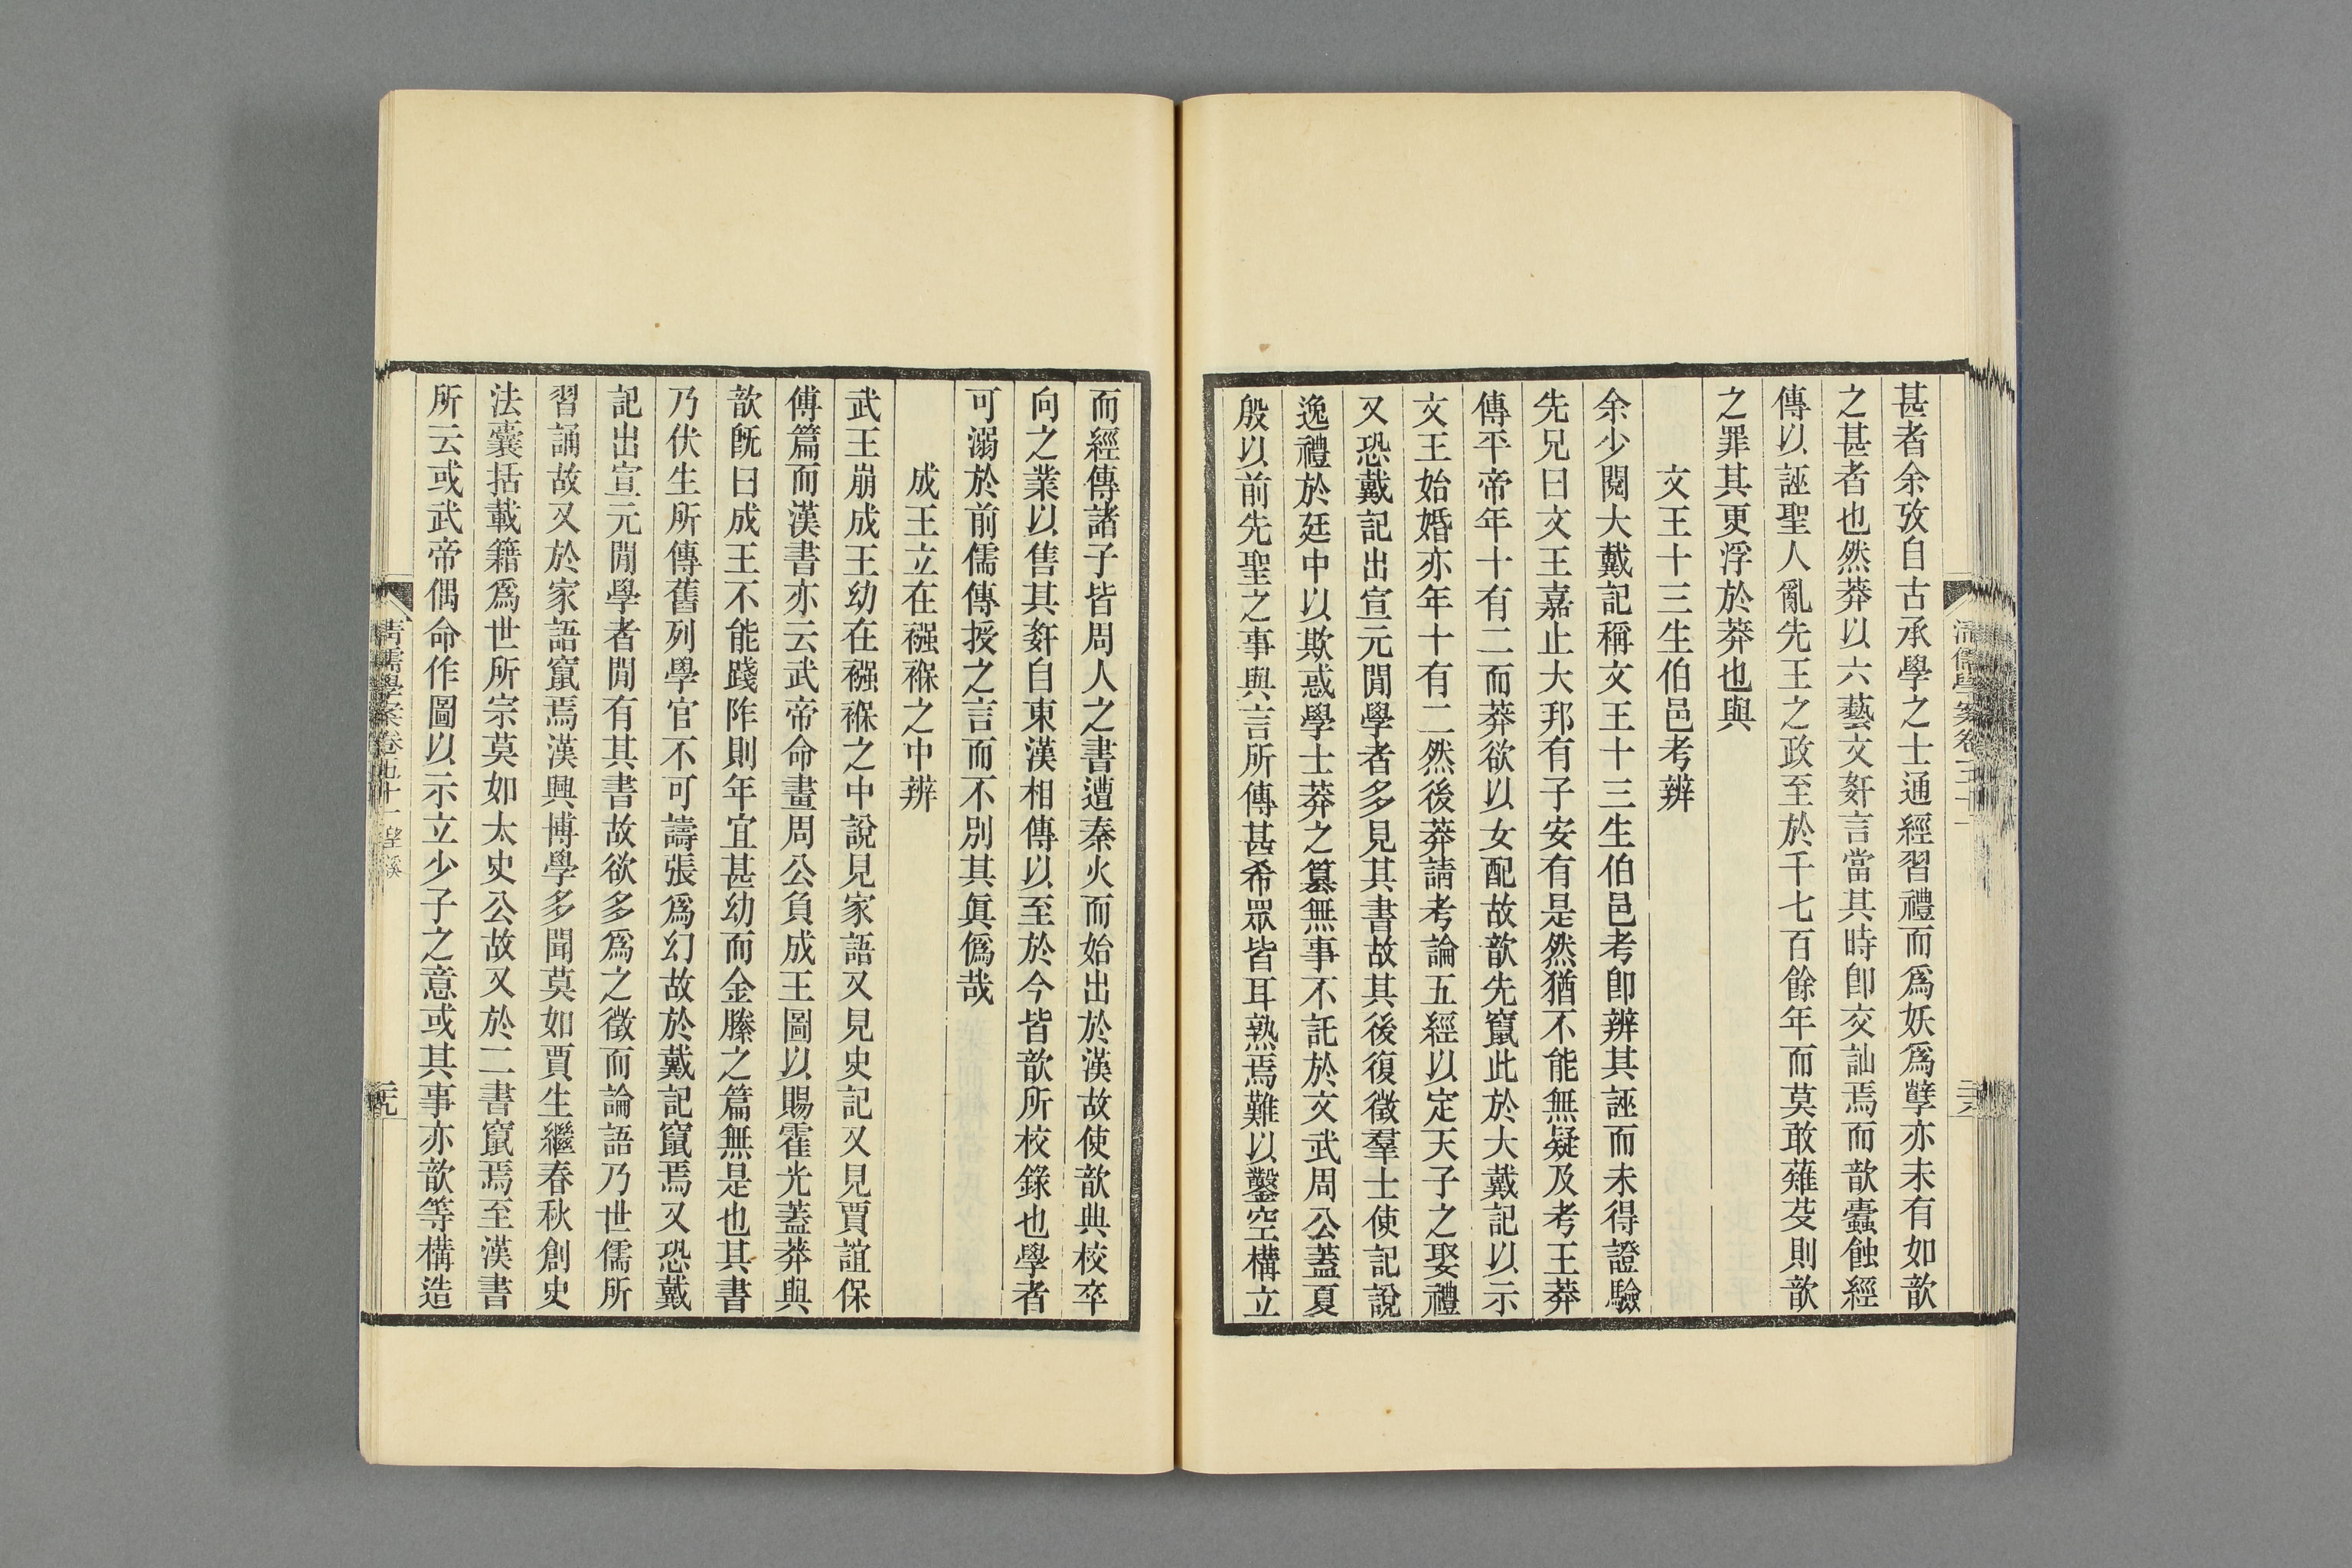 甚者余攷自古承學之士通經習禮而爲妖爲孽亦未有如歆
之甚者也然莽以六藝文姧言當其時卽交訕焉而歆蠹蝕經
傳以誣聖人亂先王之政至於千七百餘年而莫敢薙芟則歆
之罪其更浮於莽也與
文王十三生伯邑考辨
余少閱大戴記稱文王十三生伯邑考卽辨其誣而未得證驗
先兄曰文王嘉止大邦有子安有是然猶不能無疑及考王莽
傳平帝年十有二而莽欲以女配故歆先竄此於大戴記以示
文王始婚亦年十有二然後莽請考論五經以定天子之娶禮
又恐戴記出宣元閒學者多見其書故其後復徵羣士使記說
逸禮於廷中以欺惑學士莽之篡無事不託於文武周公蓋夏
殷以前先聖之事與言所傳甚希眾皆耳熟焉難以鑿空構立
而經傳諸子皆周人之書遭秦火而始出於漢故使歆典校卒
向之業以售其姧自東漢相傳以至於今皆歆所校錄也學者
可溺於前儒傳授之言而不別其眞僞哉
成王立在襁褓之中辨
武王崩成王幼在襁褓之中說見家語又見史記又見賈誼保
傅篇而漢書亦云武帝命畫周公負成王圖以賜霍光蓋莽與
歆旣曰成王不能踐阼則年宜甚幼而金縢之篇無是也其書
乃伏生所傳舊列學官不可譸張爲幻故於戴記竄焉又恐戴
記出宣元閒學者閒有其書故欲多爲之徵而論語乃世儒所
習誦故又於家語竄焉漢興博學多聞莫如賈生繼春秋創史
法囊括載籍爲世所宗莫如太史公故又於二書竄焉至漢書
所云或武帝偶命作圖以示立少子之意或其事亦歆等構造
清儒學案卷五十一 望溪